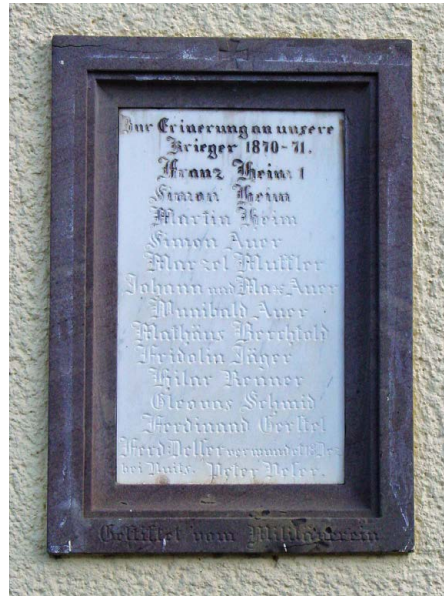 Zur Erinerung an unsere
Krieger 1870-71.
Franz Heim 1
Simon Heim
Martin Heim
Simon Auer
Marzel Muffler
Johann und Max Auer
Wunibald Auer
Mathäus Berchtold
Fridolin Jäger
Hilar Renner
Cleovas Schmid
Ferdinand Gerstel
Ferd. verwundet
bei Nuits. Peter
Gestiftet vom Militärverein